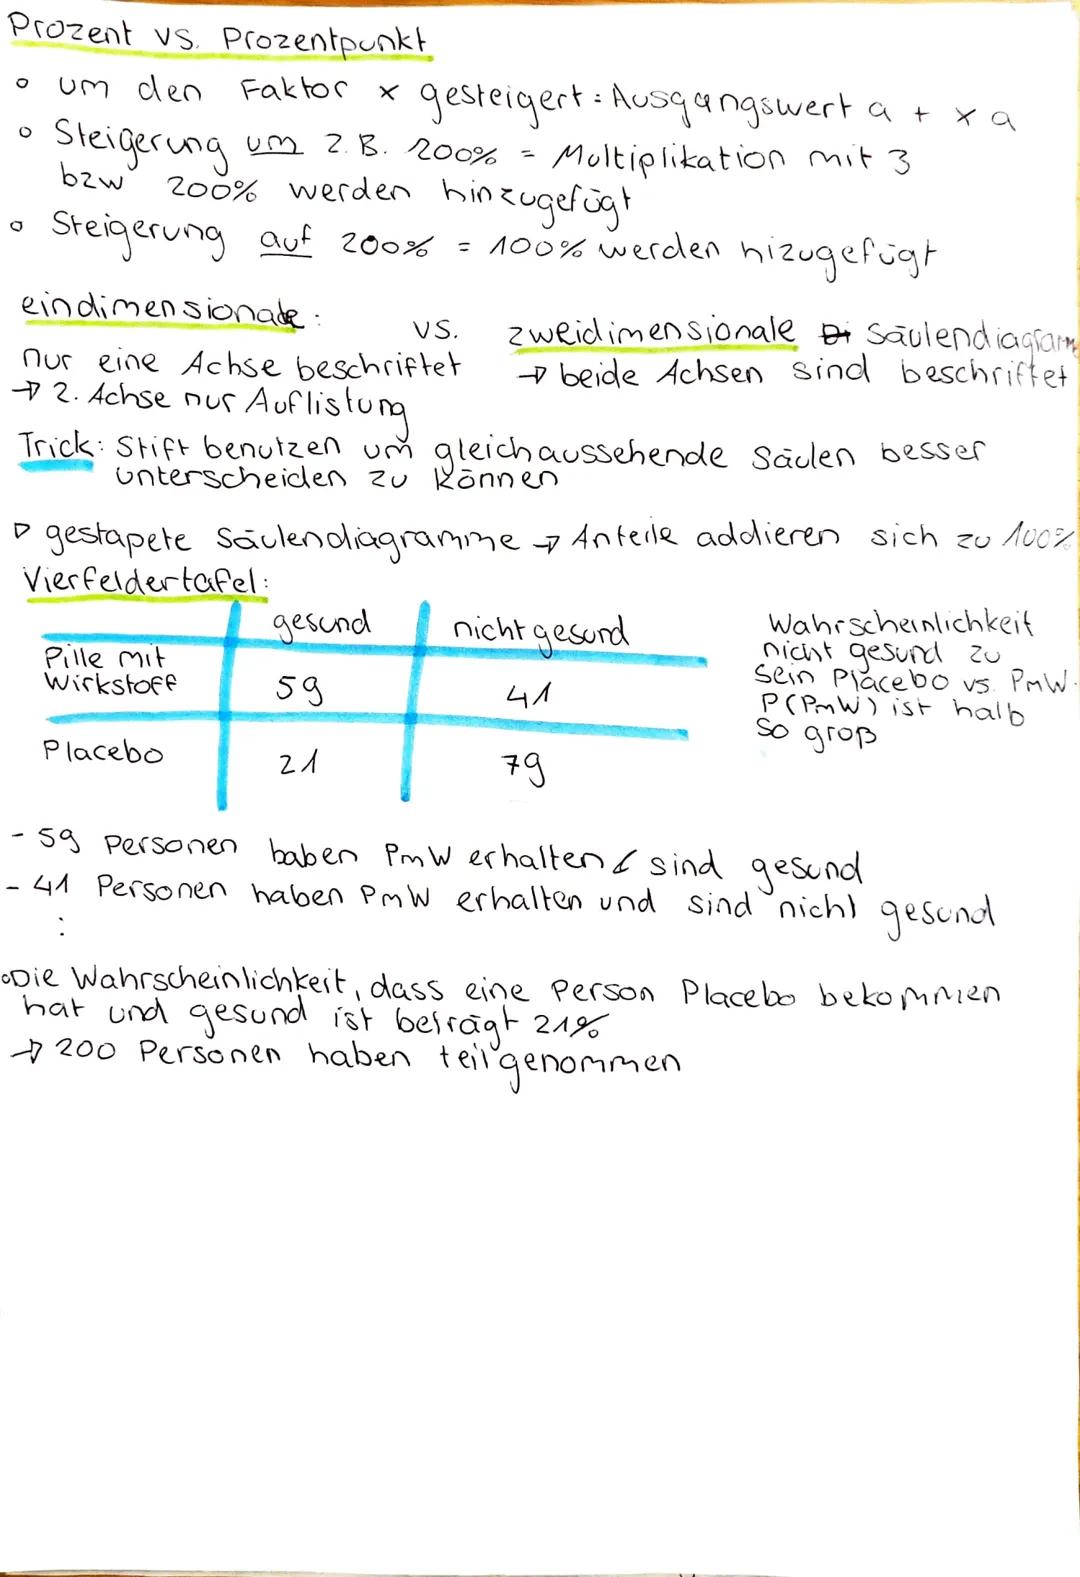 Prozent vs. Prozentpunkt
o um den Faktor x gesteigert: Ausgangswert a + x a
o Steigerung um z.B. 200% = Multiplikation mit 3
bzw 200% werden hinzugefügt
o Steigerung auf 200% = 100% werden hizugefügt
eindimensionale: vs. zweidimensionale Di Säulendiagramm
nur eine Achse beschriftet → beide Achsen sind beschriftet
→ 2. Achse nur Auflistung
Trick: Stift benutzen um gleichaussehende Säulen besser
unterscheiden zu können
▷ gestapete Säulendiagramme → Anteile addieren sich zu 100%
Vierfeldertafel:
gesund nicht gesund
Pille mit
Wirkstoff 59 41
Placebo 21 79
Wahrscheinlichkeit
nicht gesund zu
sein Placebo vs. PmW.
P(PmW) ist halb
so groß
- 59 Personen baben PmW erhalten & sind gesund
- 41 Personen haben PmW erhalten und sind nicht gesund
⋮
o Die Wahrscheinlichkeit, dass eine Person Placebo bekommen
hat und gesund ist beträgt 21%
→ 200 Personen haben teilgenommen